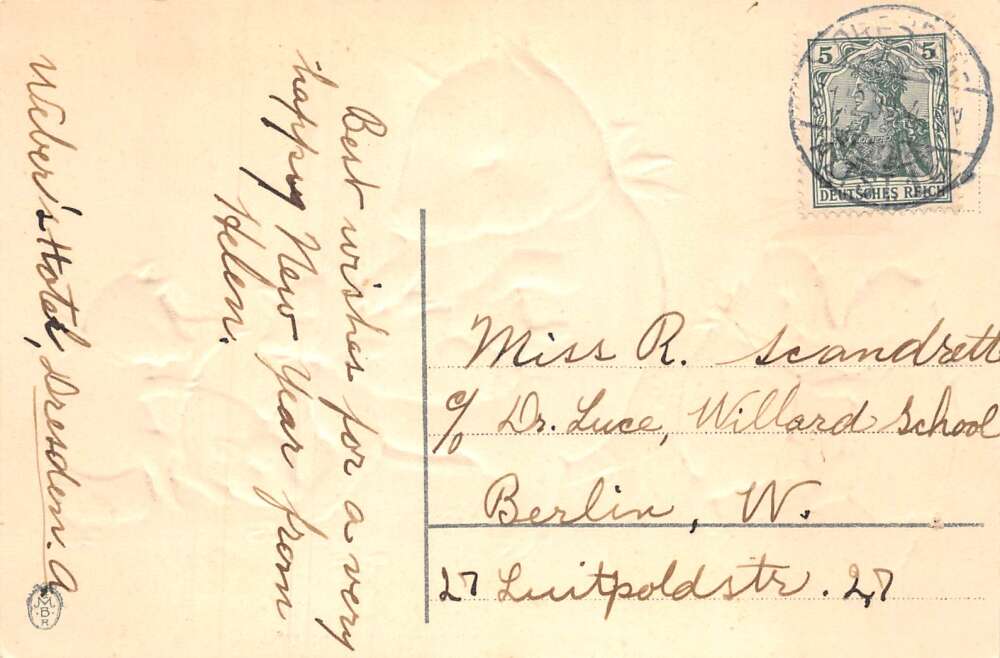 Best wishes for a very
happy New Year from
Helen.
Weber's Hotel, Dresden. A
5 5
DEUTSCHES REICH
DRESDEN
Miss R. Scandrett
c/o Dr. Luce, Willard School
Berlin, W.
27 Luitpoldstr. 27
M
B
R